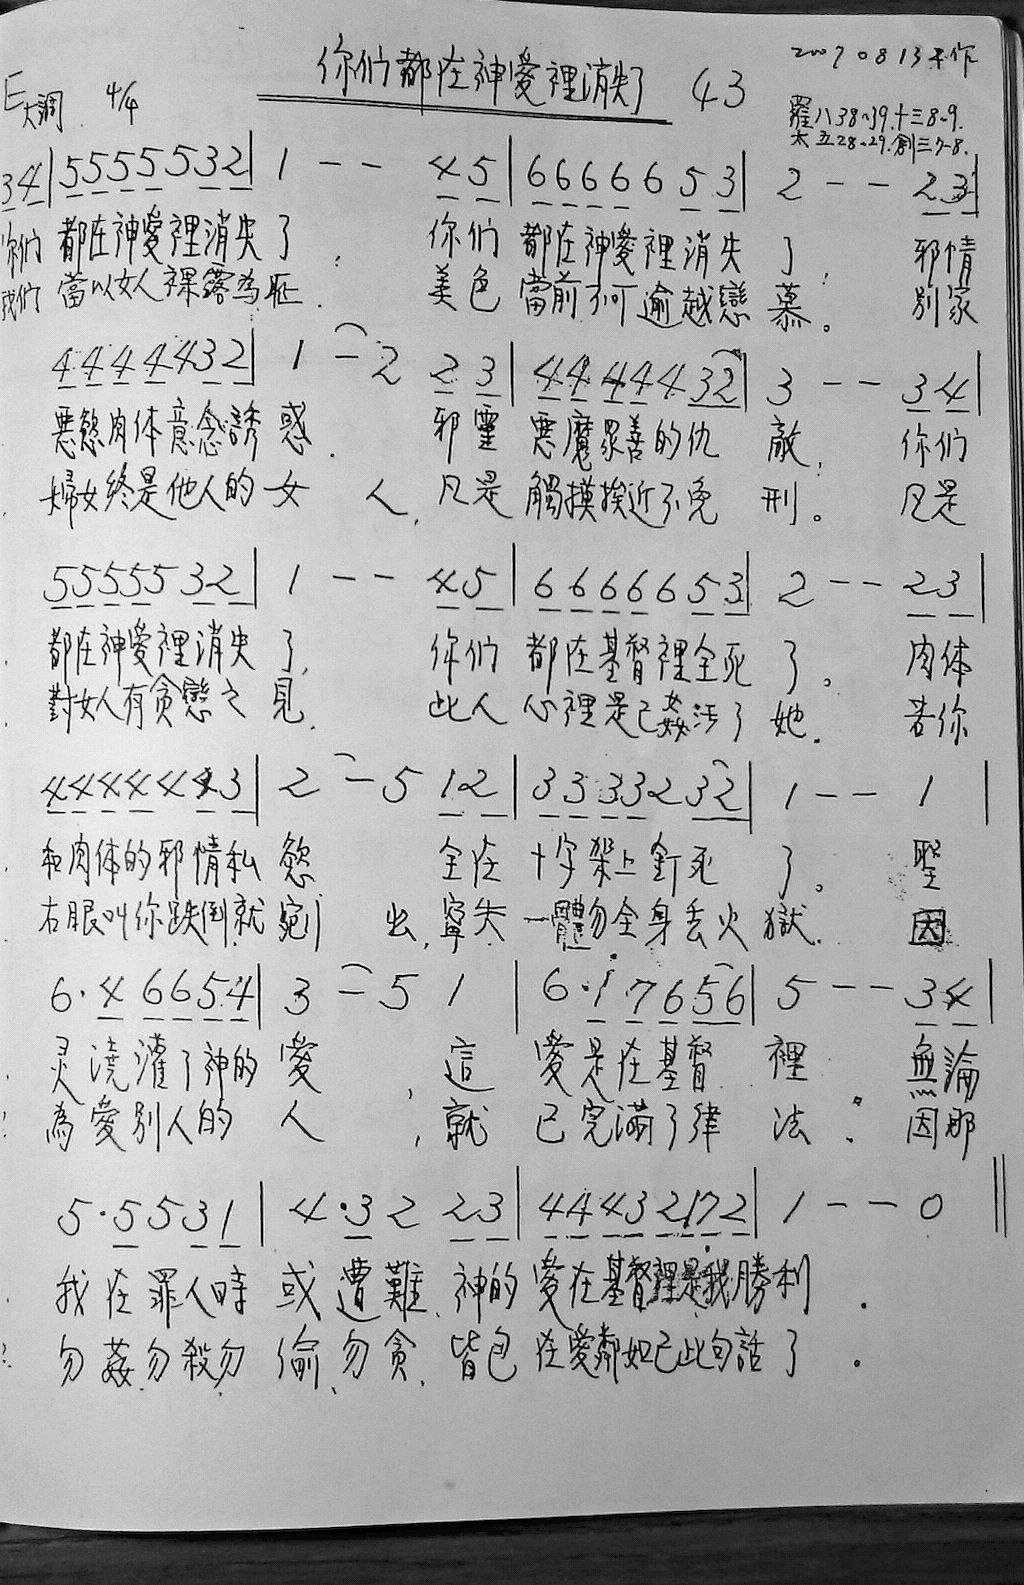 你们都在神愛裡消失了 43
20070813 作
E大調 4/4
羅八38~39.十三8~9.
太五28~29.創三7~8.
34|5555532|1 - - 45|6666653|2 - - 23|
你们 都在神愛裡消失了. 你们 都在神愛裡消失了, 邪情
我们 當以女人裸露為恥. 美色 當前不可逾越戀慕。 別家
4444432|1 - 2 23|4444432|3 - - 34|
惡慾肉体意念誘惑. 邪靈 惡魔眾善的仇敵, 你们
婦女終是他人的女人, 凡是 觸摸挨近不免刑。 凡是
5555532|1 - - 45|6666653|2 - - 23|
都在神愛裡消失了, 你们 都在基督裡全死了。 肉体
對女人有貪戀之見. 此人 心裡是已姦污了她. 若你
4444443|2 - 5 12|3333232|1 - - 1|
和肉体的邪情私慾 全在 十字架上釘死了。 聖
右眼叫你跌倒就剜出,寧失 一體勿全身丟火獄. 因
6·46654|3 - 5 1|6·17656|5 - - 34|
灵澆灌了神的愛, 這 愛是在基督裡 無論
為愛別人的人, 就 已完滿了律法. 因那
5·5531|4·32 23|44432172|1 - - 0‖
我在罪人時 或遭難.神的 愛在基督裡是我勝利.
勿姦勿殺勿偷勿貪.皆包 在愛鄰如己此句話了。